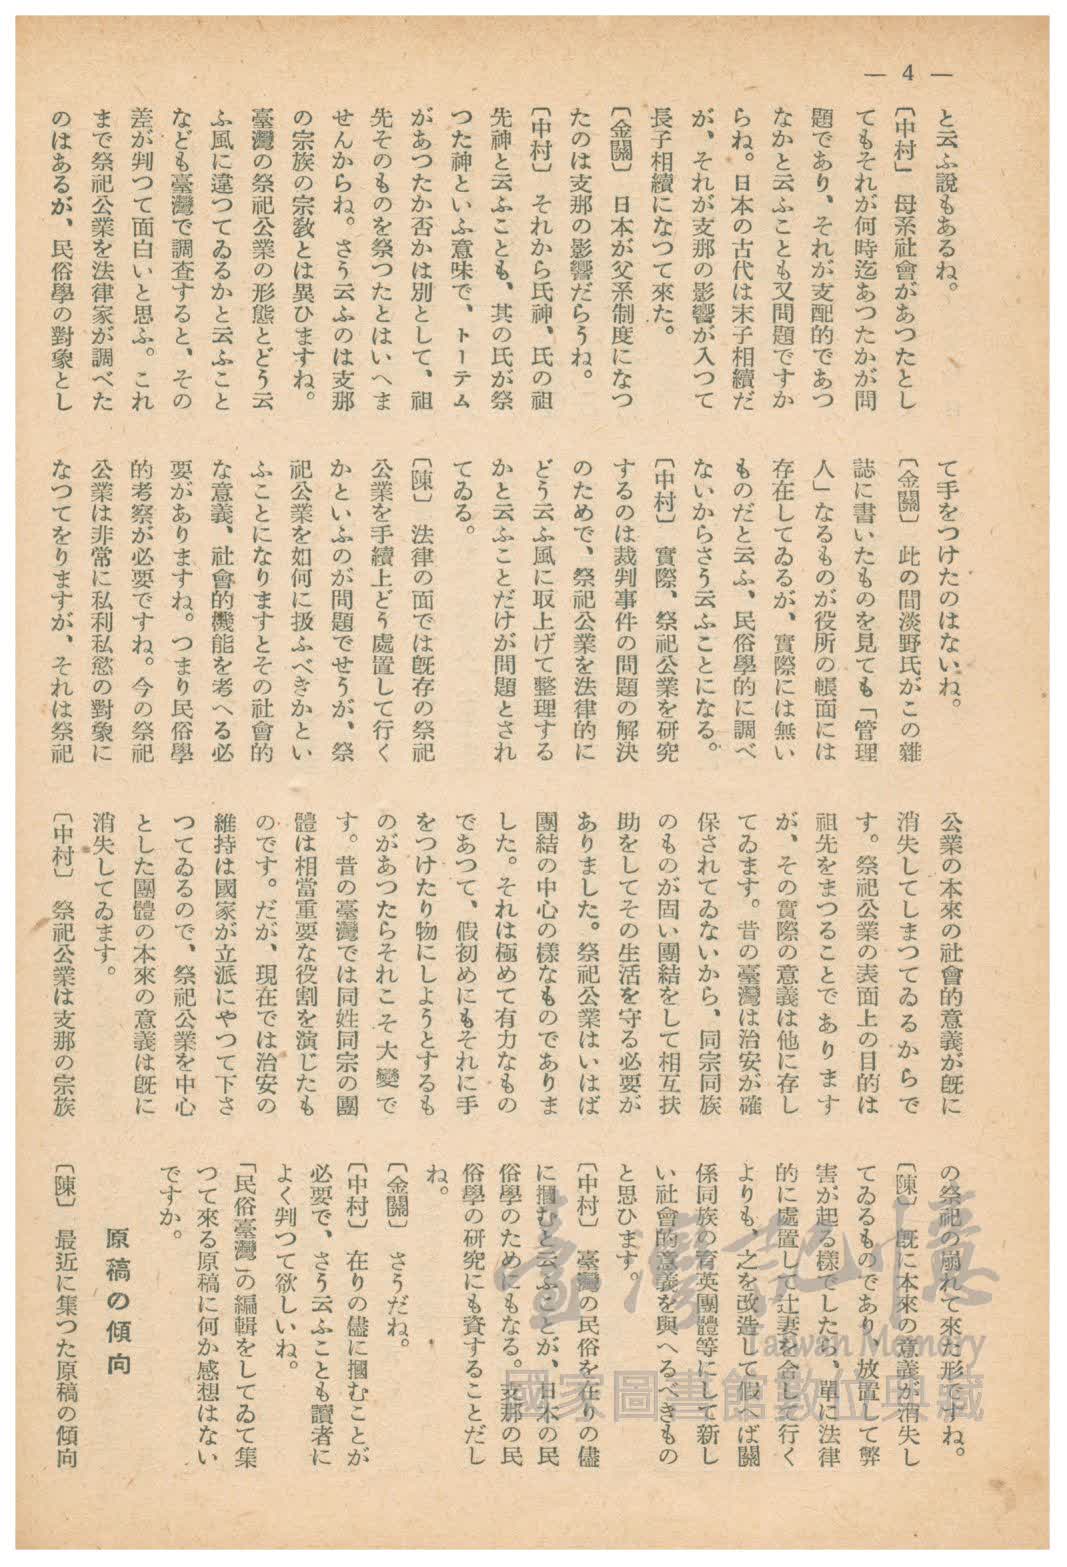 — 4 —
と云ふ說もあるね。
〔中村〕　母系社會があつたとし
てもそれが何時迄あつたかが問
題であり、それが支配的であつ
なかと云ふことも又問題ですか
らね。日本の古代は末子相續だ
が、それが支那の影響が入つて
長子相續になつて來た。
〔金關〕　日本が父系制度になつ
たのは支那の影響だらうね。
〔中村〕　それから氏神、氏の祖
先神と云ふことも、其の氏が祭
つた神といふ意味で、トーテム
があつたか否かは別として、祖
先そのものを祭つたとはいへま
せんからね。さう云ふのは支那
の宗族の宗敎とは異ひますね。
臺灣の祭祀公業の形態とどう云
ふ風に違つてゐるかと云ふこと
なども臺灣で調査すると、その
差が判つて面白いと思ふ。これ
まで祭祀公業を法律家が調べた
のはあるが、民俗學の對象とし
て手をつけたのはないね。
〔金關〕　此の間淡野氏がこの雜
誌に書いたものを見ても「管理
人」なるものが役所の帳面には
存在してゐるが、實際には無い
ものだと云ふ、民俗學的に調べ
ないからさう云ふことになる。
〔中村〕　實際、祭祀公業を硏究
するのは裁判事件の問題の解決
のためで、祭祀公業を法律的に
どう云ふ風に取上げて整理する
かと云ふことだけが問題とされ
てゐる。
〔陳〕　法律の面では既存の祭祀
公業を手續上どう處置して行く
かといふのが問題でせうが、祭
祀公業を如何に扱ふべきかとい
ふことになりますとその社會的
な意義、社會的機能を考へる必
要がありますね。つまり民俗學
的考察が必要ですね。今の祭祀
公業は非常に私利私慾の對象に
なつてをりますが、それは祭祀
公業の本來の社會的意義が既に
消失してしまつてゐるからで
す。祭祀公業の表面上の目的は
祖先をまつることであります
が、その實際の意義は他に存し
てゐます。昔の臺灣は治安が確
保されてゐないから、同宗同族
のものが固い團結をして相互扶
助をしてその生活を守る必要が
ありました。祭祀公業はいはば
團結の中心の樣なものでありま
した。それは極めて有力なもの
であつて、假初めにもそれに手
をつけたり物にしようとするも
のがあつたらそれこそ大變で
す。昔の臺灣では同姓同宗の團
體は相當重要な役割を演じたも
のです。だが、現在では治安の
維持は國家が立派にやつて下さ
つてゐるので、祭祀公業を中心
とした團體の本來の意義は既に
消失してゐます。
〔中村〕　祭祀公業は支那の宗族
の祭祀の崩れて來た形ですね。
〔陳〕　既に本來の意義が消失し
てゐるものであり、放置して弊
害が起る樣でしたら、單に法律
的に處置して辻妻を合して行く
よりも、之を改造して假へば關
係同族の育英團體等にして新し
い社會的意義を與へるべきもの
と思ひます。
〔中村〕　臺灣の民俗を在りの儘
に摑むと云ふことが、日本の民
俗學のためにもなる。支那の民
俗學の硏究にも資することだし
ね。
〔金關〕　さうだね。
〔中村〕　在りの儘に摑むことが
必要で、さう云ふことも讀者に
よく判つて欲しいね。
「民俗臺灣」の編輯をしてゐて集
つて來る原稿に何か感想はない
ですか。
原稿の傾向
〔陳〕　最近に集つた原稿の傾向
臺灣記憶
Taiwan Memory
國家圖書館數位典藏